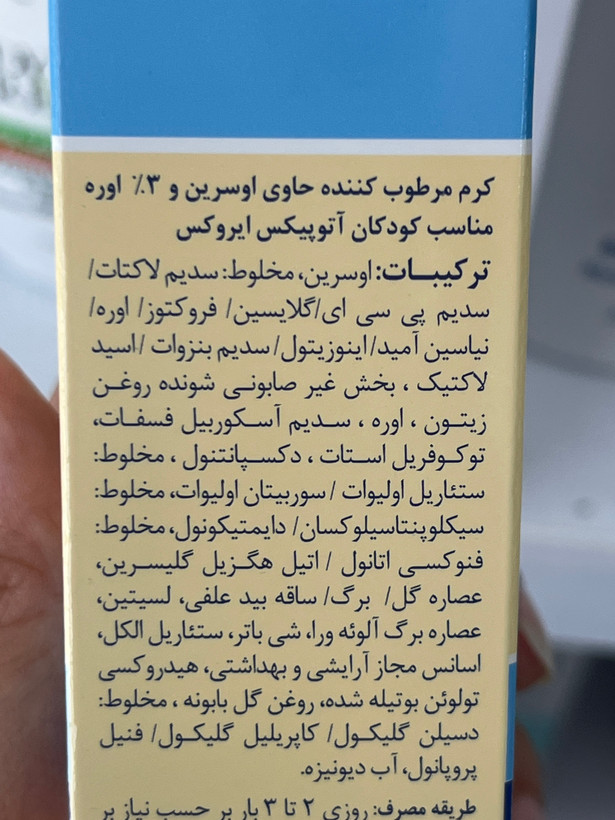 کرم مرطوب کننده حاوی اوسرین و ۳٪ اوره
مناسب کودکان آتوپیکس ایروکس
ترکیبـــات: اوسرین، مخلوط: سدیم لاکتات/
سدیم پی سی ای/گلایسین/ فروکتوز/ اوره/
نیاسین آمید/اینوزیتول/سدیم بنزوات /اسید
لاکتیک ، بخش غیر صابونـی شونده روغـن
زیتـون ، اوره ، سـدیم آسـکوربیل فسفـات،
توکـوفریل اسـتات ، دکسـپانتنول ، مخلوط:
ستئاریل اولیوات /سوربیتان اولیوات، مخلوط:
سیکلوپنتاسیلوکسان/ دایمتیکونول، مخلوط:
فنوکسـی اتانول / اتیل هگـزیل گلیسـرین،
عصاره گل/ برگ/ ساقه بید علفی، لسیتین،
عصاره برگ آلوئه ورا، شی باتر، ستئاریل الکل،
اسانس مجاز آرایشی و بهداشتی، هیدروکسی
تولوئن بوتیله شده، روغن گل بابونه ، مخلوط:
دسیلن گلیکـول/ کاپریلیل گلیکـول/ فنیل
پروپانول، آب دیونیزه.
طریقه مصرف: روزی ۲ تا ۳ بار بر حسب نیاز بر